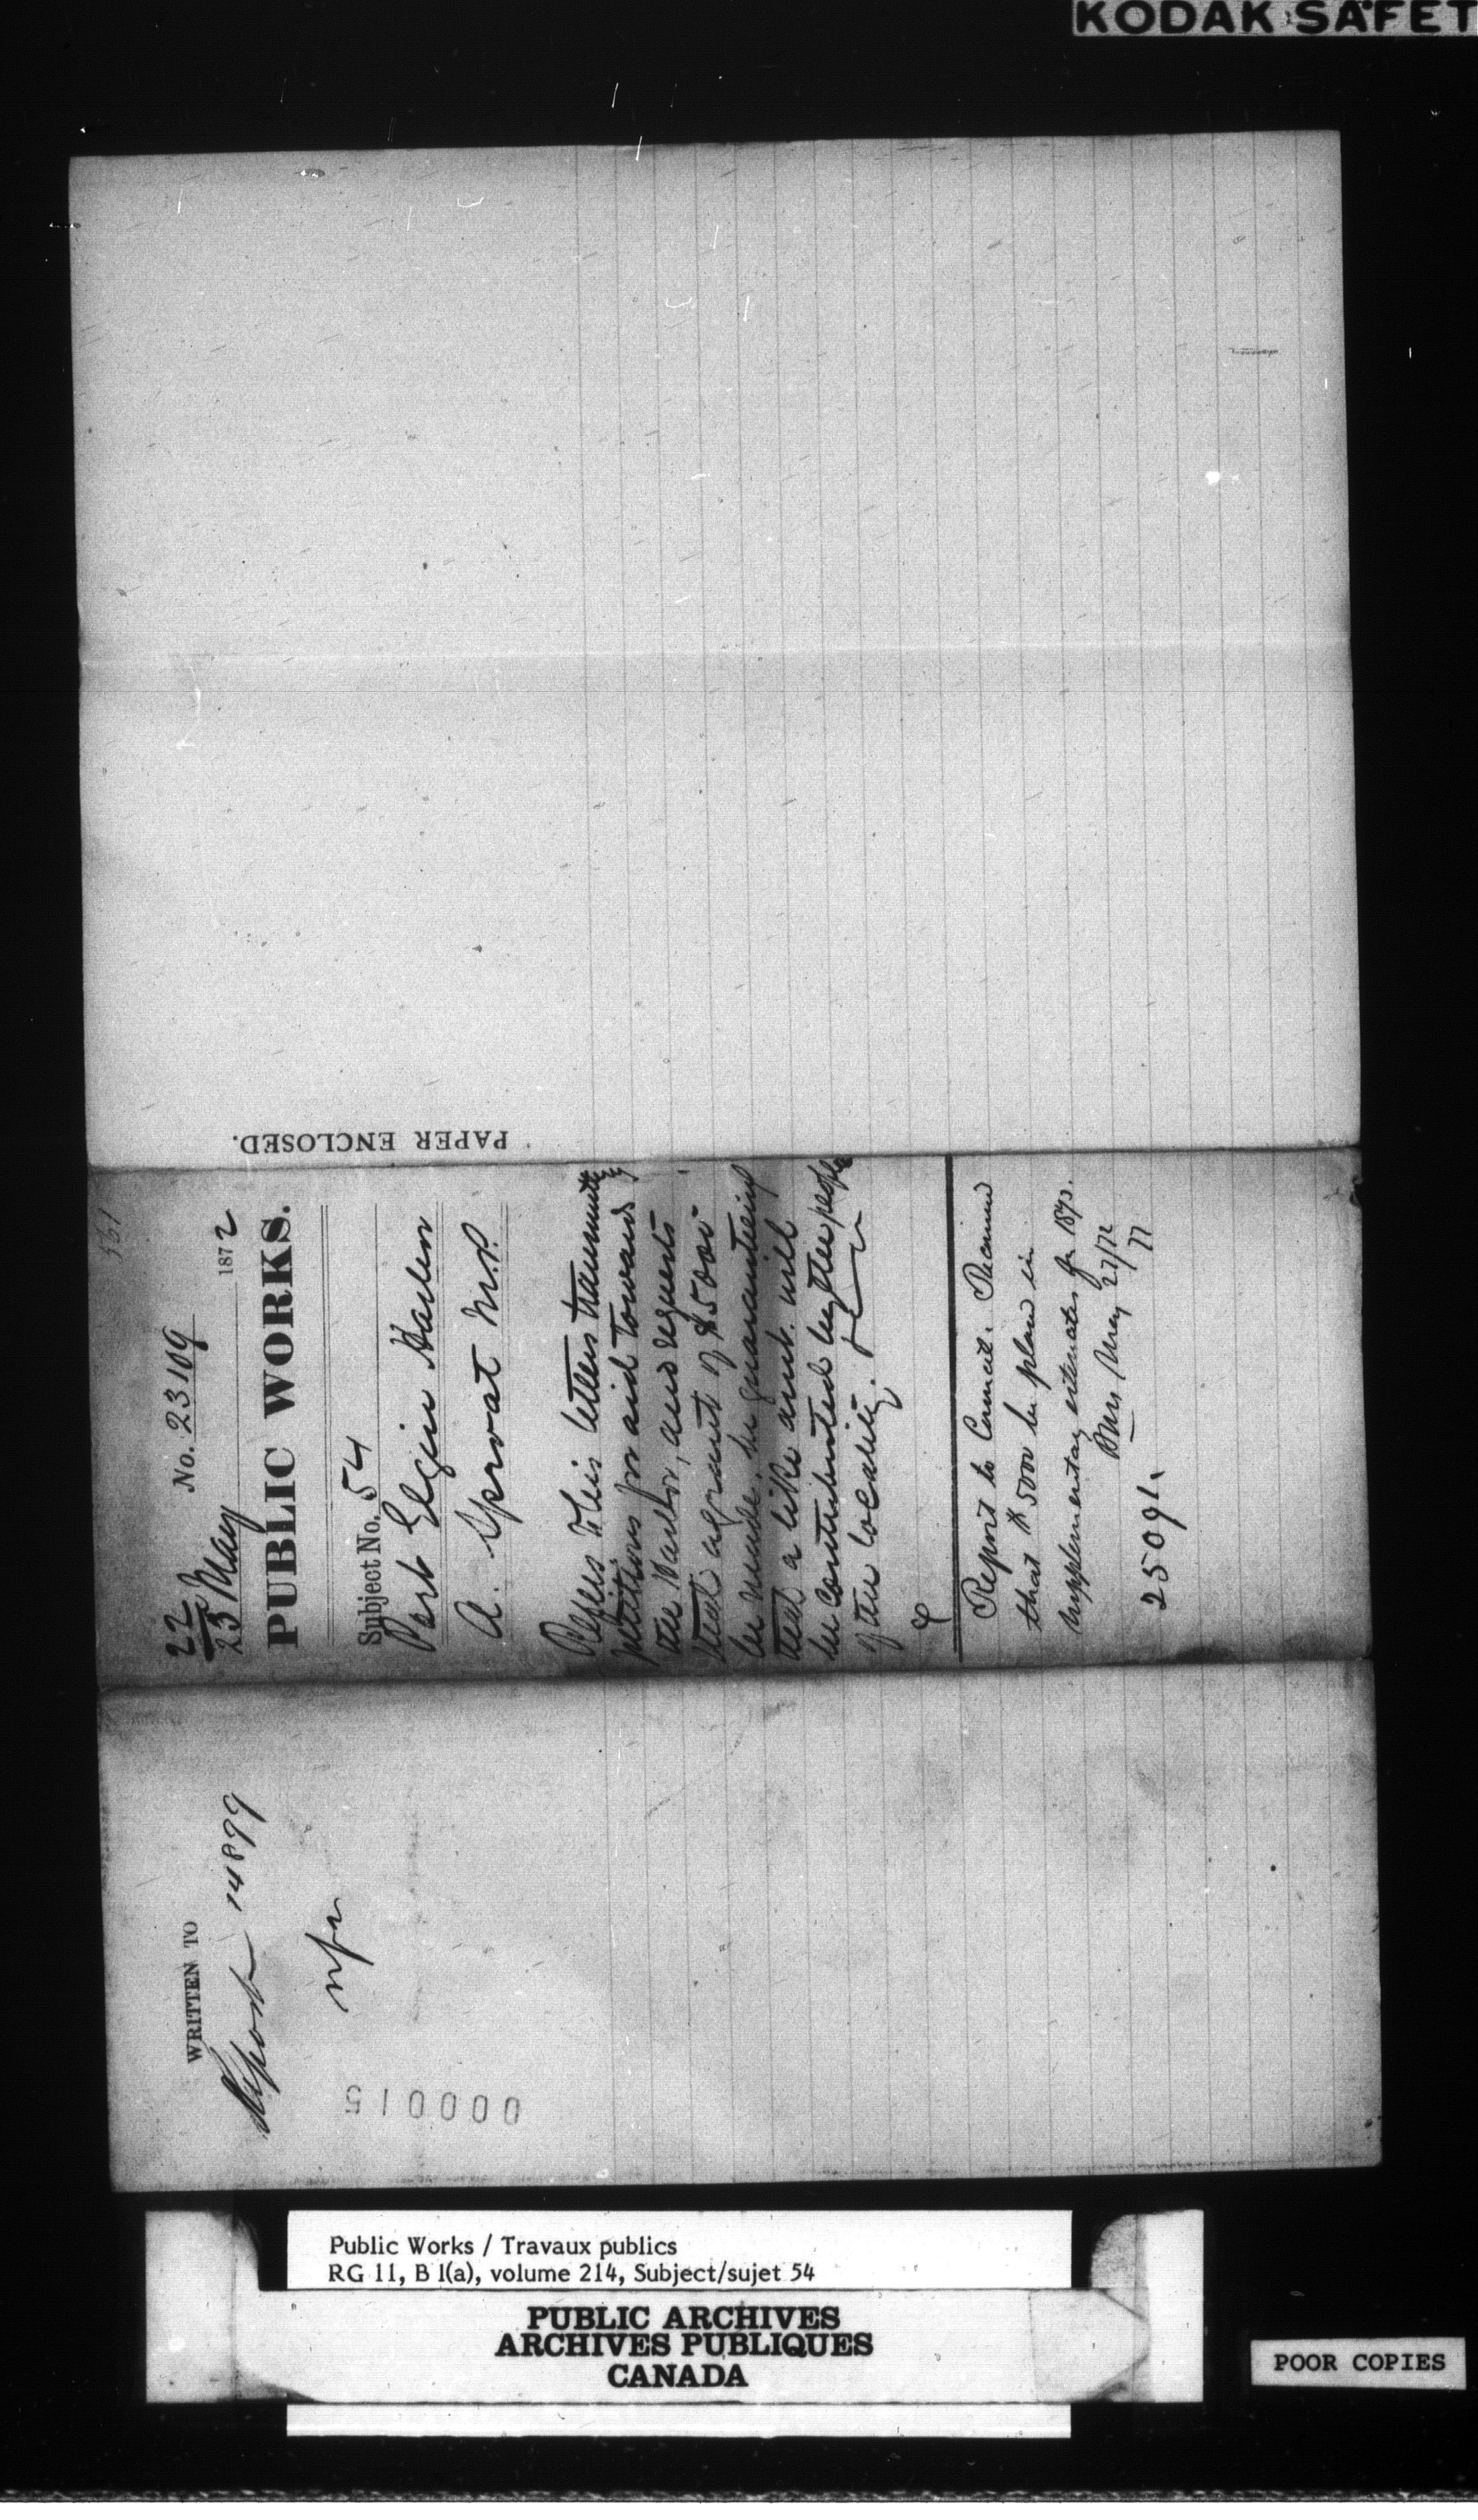 KODAK SAFET
PAPER ENCLOSED.
561
No. 23109
22
23 May 1872
PUBLIC WORKS.
Subject No. 54
Port Elgin Harbor
A. Sproat M.P.
Refers to his letters transmitting
petitions for aid towards
the Harbor, and requests
that a grant of $5000
be made, he guaranteeing
that a like amt. will
be contributed by the people
of the locality.
Report to Council. Recommend
that $5000 be placed in
supplementary estimates for 1873.
May 27/72
77
25091.
WRITTEN TO
Report 14899
000015
Public Works / Travaux publics
RG 11, B 1(a), volume 214, Subject/sujet 54
PUBLIC ARCHIVES
ARCHIVES PUBLIQUES
CANADA
POOR COPIES